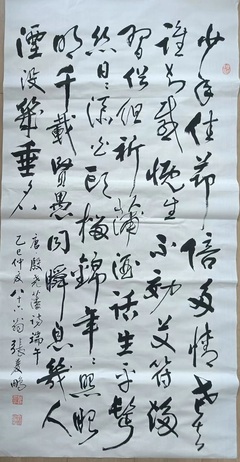 少年佳節倍多情老去
誰知感慨生不効艾符趨
習俗但祈蒲酒話生平鬢
絲日日添白頭榴錦年年照眼
明千載賢愚同瞬息幾人
湮没幾垂名
唐殷尧藩詩端午
乙巳仲夏八十六翁張